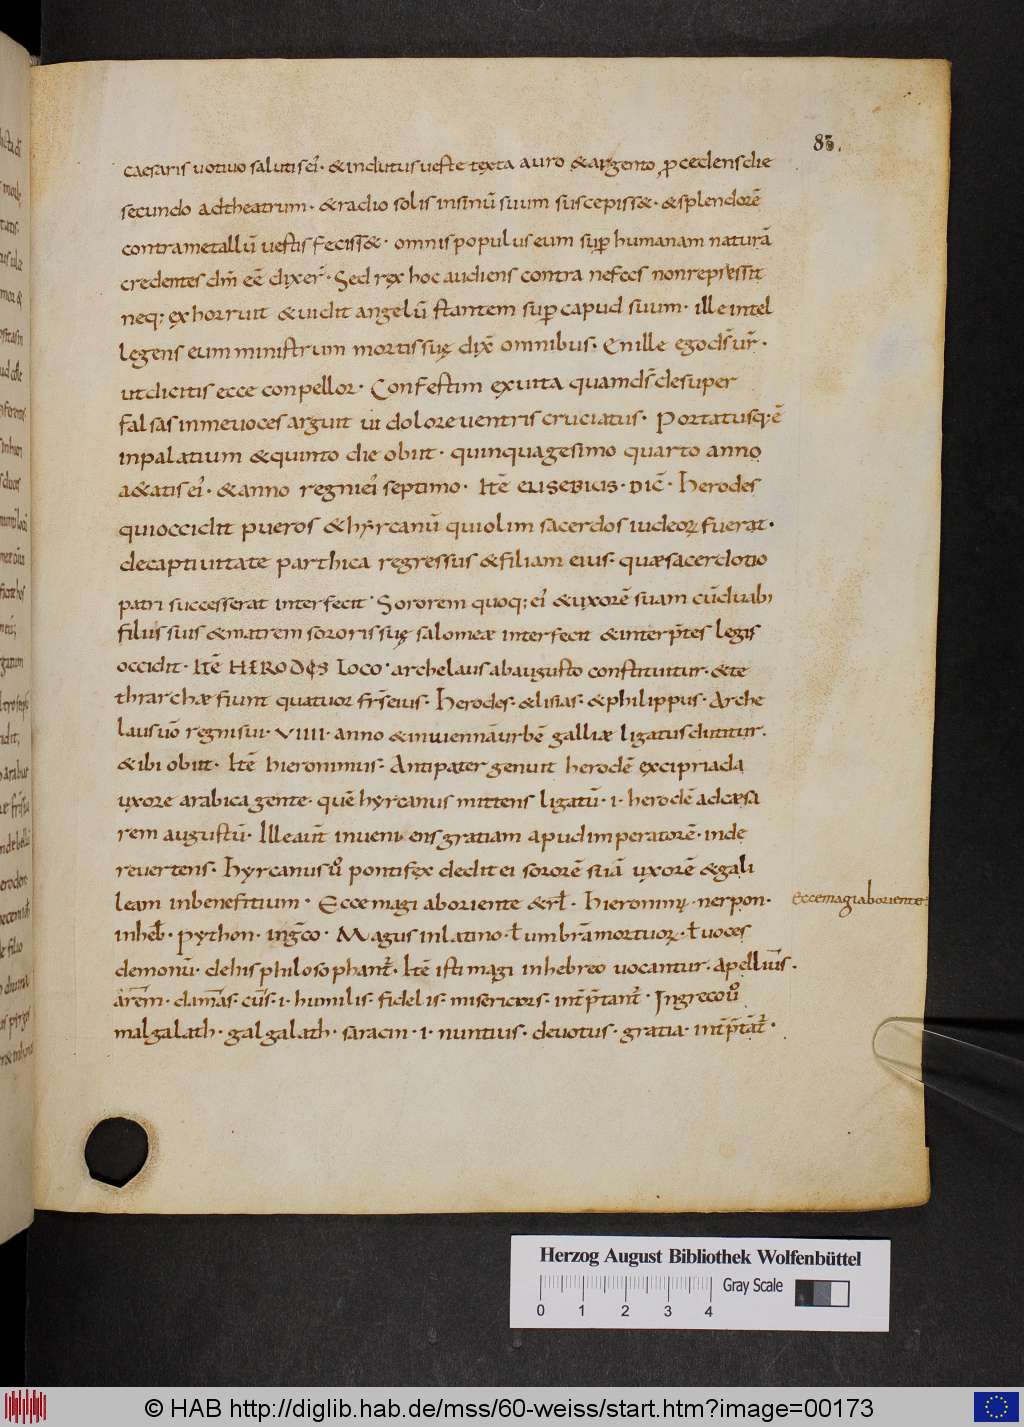 85.
caesaris uotuo salutis ei᷒· &indutus ueste texta auro &argento, ꝓcedens die
secundo adtheatrum· &radio solis insinū suum suscepiss&· &splendorē
contrametallū uestis feciss&· omnis populus eum suꝑ humanam naturā
credentes dm̄ eē dixer̄· Sed rex hoc audiens contra nefocs nonrepressit
neq; exhorruit &uidit angelū stantem suꝑ capud suum· ille intel
legens eum ministrum mortis suę dix̄ omnibus· Enille ego ds̄ ur̄·
ut dicitis ecce conpellor· Confestim exuita quamds̄ desuper
falsas inmeuoces arguit ui dolore uentris cruciatus· Portatusq; ē
inpalatium &quinto die obiit· quinquagesimo quarto anno
a&atis ei᷒· &anno regni ei᷒ septimo· Itē EUSEBIUS· DIC̄· Herodes
quioccidit pueros &hyrcanū qui olim sacerdos iudeoꝝ fuerat·
decaptiuitate parthica regressus &filiam eius· quæ sacerdotio
patri successerat interfecit· Sororem quoq; ei᷒ &uxorē suam cū duabꝰ
filiis suis &matrem sororis suę salomeæ interfecit &interp̄tes legis
occidit· Itē HERODES LOCO· archelaus abaugusto constituitur· &te
thrarchæ fiunt quatuor fr̄s eius· Herodes· &lisias· &philippus· Arche
laus uō regni sui· VIIII· anno &in uiennā urbē galliæ ligatus dicitur·
&ibi obiit· Itē hieronimus· Antipater genuit herodē excipriada
uxore arabica gente· quē hyrcanus mittens ligatū· i· herodē adcæsa
rem augustū· Ille aut̄ inueniens gratiam apud imperatorē· inde
reuertens· Hyrcanus uº pontifex dedit ei sororē suā uxorē &gali
leam inbenefitium· Ecce magi aboriente &rł· Hieronimꝰ· nerpon·
inheb̄· python· ingc̄o· Magus inlatino· ł umbrā mortuoꝝ· ł uoces
demonū· dehis philosophant̄· Itē isti magi inhebreo uocantur· apellius·
arem· damas· cus· i· humilis· fidelis· misericors· int̄p̄tant̄· Ingreco uº
malgalath· galgalath· saracin· i· nuntius· deuotus· gratia· int̄p̄tāt̄·
Eccemagiaboriente·
Herzog August Bibliothek Wolfenbüttel
Gray Scale
0 1 2 3 4
© HAB http://diglib.hab.de/mss/60-weiss/start.htm?image=00173